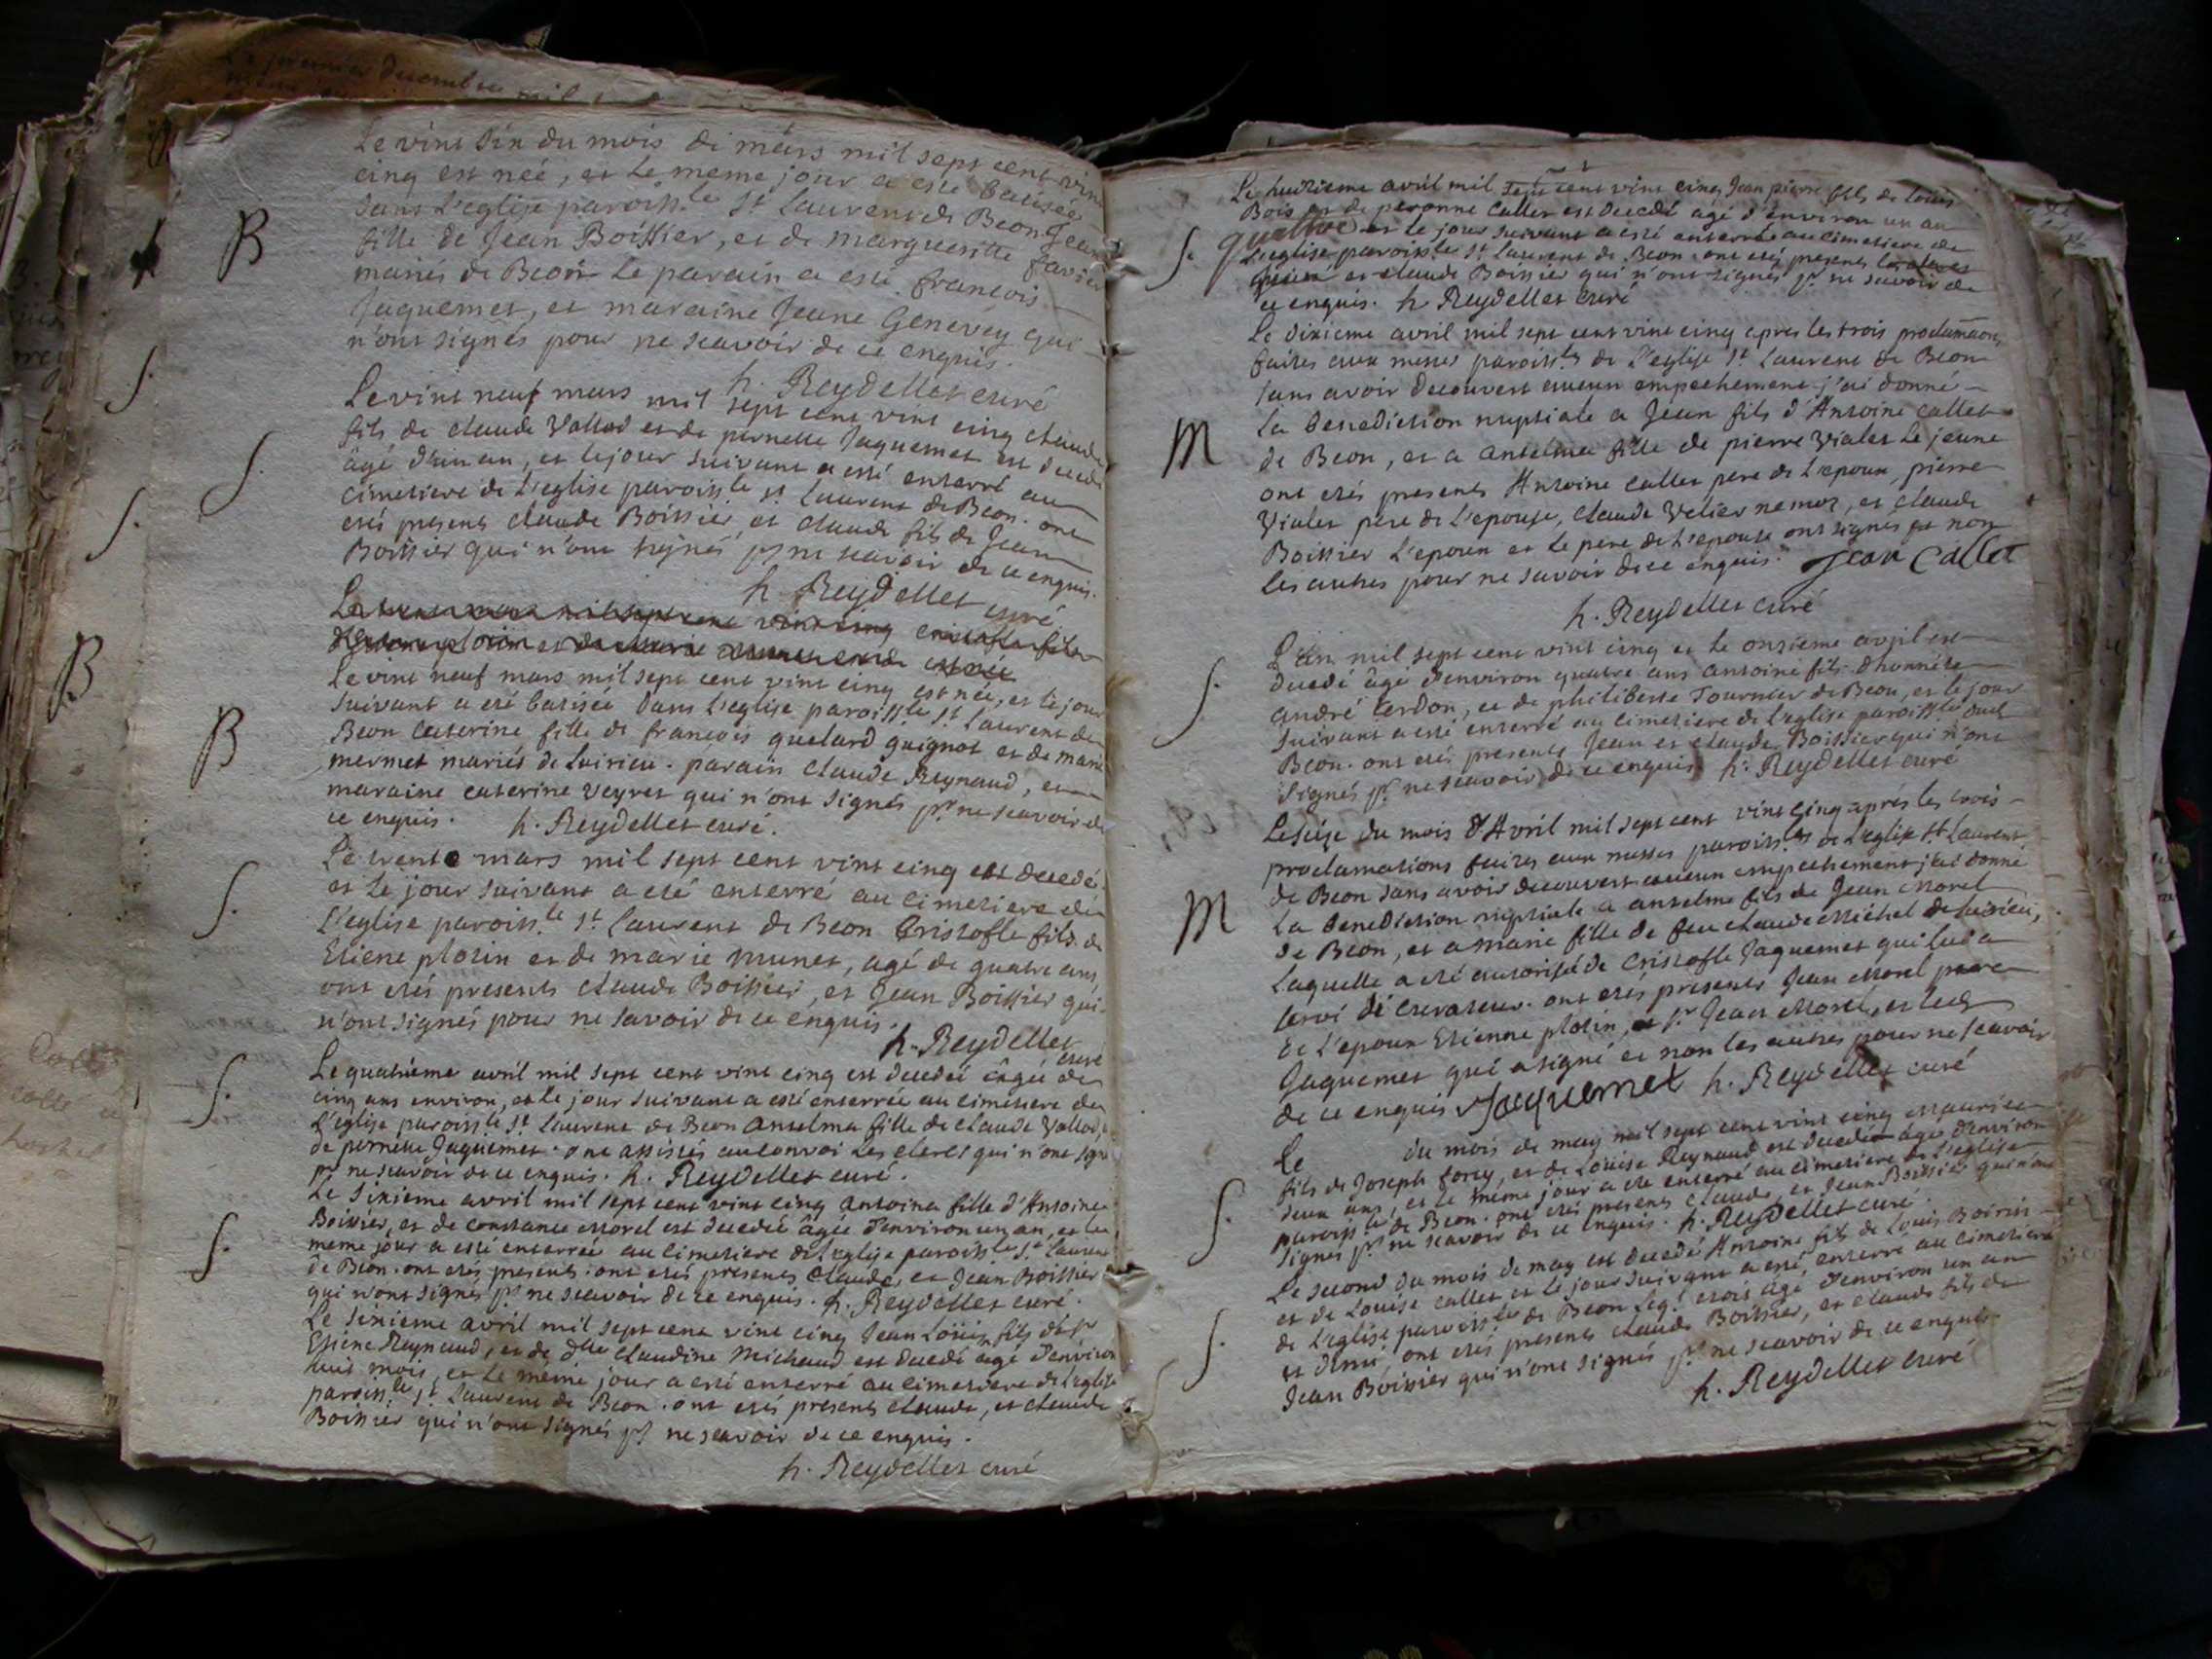 B
Le vint six du mois de mars mil sept cent vint
cinq est née, et le meme jour a esté batisée
dans l'eglise paroiss.le St Laurent de Beon Jeane
fille de Jean Boissier, et de marguerite favier
mariés de Beon Le parain a esté françois
Jaquemet, et maraine Jeane Genevey qui
n'ont signés pour ne scavoir de ce enquis.
h. Reydellet curé
S.
Le vint neuf mars mil sept cent vint cinq claude
fils de claude Vallod et de pernette Jaquemet est decedé
âgé d'un an, et le jour suivant a esté enterré au
cimetiere de l'eglise paroiss.le St Laurent de Beon. ont
etés presents claude Boissier, et claude fils de Jean
Boissier qui n'ont signés pr ne scavoir de ce enquis.
h. Reydellet curé
vint cinq cristofle fils
est née
B
Le vint neuf mars mil sept cent vint cinq est née, et le jour
suivant a eté batisée dans l'eglise paroiss.le St Laurent de
Beon caterine fille de françois quelard guignot et de marie
mermet mariés de Luirieu. parain claude Reynaud, et
maraine caterine veyret qui n'ont signés pr ne scavoir de
ce enquis. h. Reydellet curé.
S.
Le trente mars mil sept cent vint cinq est decedé,
et le jour suivant a eté enterré au cimetiere de
l'eglise paroiss.le St Laurent de Beon Cristofle fils de
Etiene plotin et de marie munet, agé de quatre ans,
ont etés presents claude Boissier, et Jean Boissier qui
n'ont signés pour ne savoir de ce enquis.
h. Reydellet
curé
S.
Le quatrieme avril mil sept cent vint cinq est decedée âgée de
cinq ans environ, et le jour suivant a esté enterrée au cimetiere de
l'eglise paroiss.le St Laurent de Beon Anselma fille de claude Vallod,
de pernette Jaquemet. ont assistés au convoi Les clercs qui n'ont signé
pr ne scavoir de ce enquis. h. Reydellet curé.
S.
Le sixieme avril mil sept cent vint cinq Antoina fille d'Antoine
Boivier, et de constance Morel est decedée âgée d'environ un an, et le
meme jour a esté enterrée au cimetiere de l'eglise paroiss.le St Laurent
de Beon. ont etés presents. ont etés presents Claude, et Jean Boissier
qui n'ont signés pr ne scavoir de ce enquis. h. Reydellet curé.
Le sixieme avril mil sept cent vint cinq Jean Loüis fils de sr
Etiene Reynaud, et de dlle Claudine Michaud est decedé agé d'environ
huit mois, et le même jour a esté enterré au cimetiere de l'eglise
paroiss.le St Laurent de Beon. ont etés presents claude, et claude
Boissier qui n'ont signés pr ne scavoir de ce enquis.
h. Reydellet curé
S.
Le huitieme avril mil sept cent vint cinq Jean pierre fils de Louis
Bois et de peronne Callet est decedé agé d'environ un an
quattre et le jour suivant a esté enterré au cimetiere de
L'eglise paroiss.le St Laurent de Beon. ont etés presents
et claude Boissier qui n'ont signés pr ne savoir de
ce enquis. h. Reydellet curé
M
Le dixieme avril mil sept cent vint cinq apres les trois proclamaons
faites aux messes paroiss.les de l'eglise St Laurent de Beon
sans avoir decouvert aucun empechement j'ai donné
La benediction nuptiale a Jean fils d'Antoine callet
de Beon, et a antelma fille de pierre Vialet le jeune
ont etés presents Antoine callet pere de l'epoux, pierre
Vialet pere de l'epouse, claude Velier nemoz, et claude
Boissier L'epoux et le pere de l'epouse ont signés et non
les autres pour ne savoir de ce enquis. Jean Callet
h. Reydellet curé
S.
L'an mil sept cent vint cinq et le onzieme avril est
decedé âgé d'environ quatre ans antoine fils d'honnéte
andré Cerdon, et de philiberte Tournier de Beon, et le jour
suivant a esté enterré au cimetiere de l'eglise paroiss.le dud
Beon. ont etés presents Jean et claude Boissier qui n'ont
signés pr ne scavoir de ce enquis. h. Reydellet curé
M
Le seize du mois d'Avril mil sept cent vint cinq aprés les trois
proclamations faites aux messes paroiss.les de l'eglise St Laurent
de Beon sans avoir decouvert aucun empechement j'ai donné
La benediction nuptiale a anselme fils de Jean Morel
de Beon, et a marie fille de feu claude Michel de Luirieu,
Laquelle a eté autorisée de Cristofle Jaquemet qui lui a
servi de curateur. ont etés presents Jean Morel pere
de l'epoux Etienne plotin, et sr Jean Morel, et led
Jaquemet qui a signé et non les autres pour ne scavoir
de ce enquis Jacquemet h. Reydellet curé
S.
Le du mois de may mil sept cent vint cinq Maurice
fils de Joseph forey, et de Loüise Reynaud est decedé âgé d'environ
deux ans, et le meme jour a eté enterré au cimetiere de l'eglise
paroiss.le de Beon. ont etés presents claude, et Jean Boissier qui n'ont
signés pr ne scavoir de ce enquis. h. Reydellet curé.
S.
Le second du mois de may est decedé Antoine fils de Louis Boirin
et de Louise callet et le jour suivant a eté enterré au cimetiere
de l'eglise paroiss.le de Beon Leq.l etois agé d'environ un an
et demi, ont etés presents claude Boissier, et claude fils de
Jean Boissier qui n'ont signés pr ne scavoir de ce enquis.
h. Reydellet curé